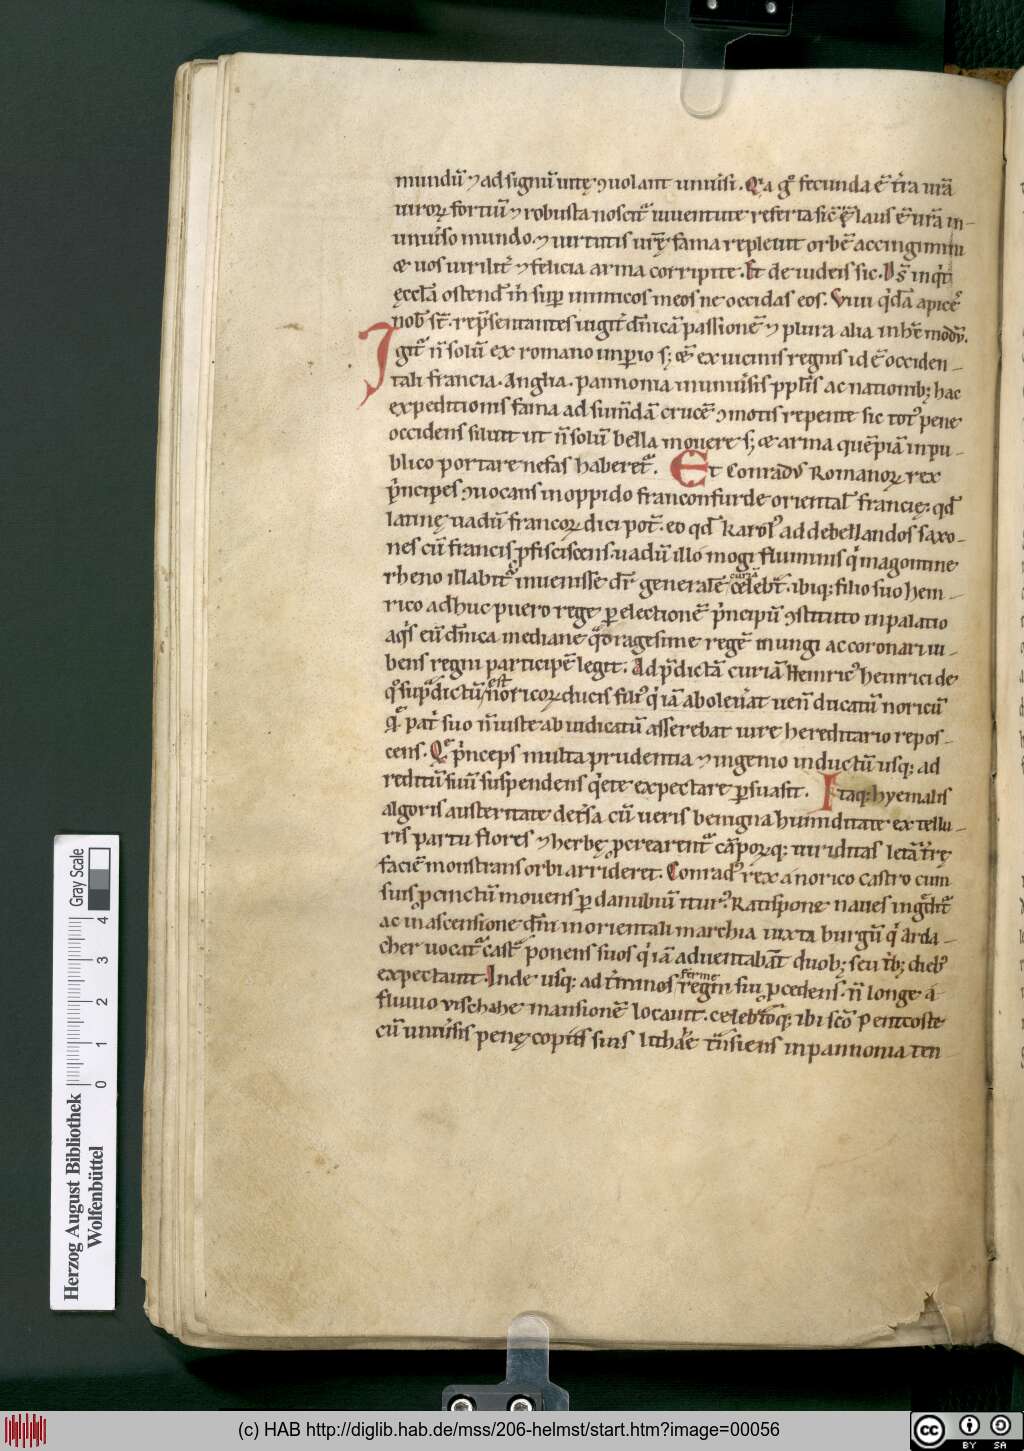 mundū ⁊ ad signū uitę ꝯuolant uniuͥsi. Qͥa gͦ fecunda ē tr̄a ur̄a
uiroꝝ fortiū ⁊ robusta noscit᷑ iuuentute referta sic̄ ē laus ūra in
uniuͥso mundo. ⁊ uirtutis urę̄ fama repleuit orbē accingimini
⁊ uos uirilit̄ ⁊ felicia arma corripite. Et de iudeis sic. Ds̄ inqͥt
ęcclā ostend̄ m̄ sup̲ inimicos meos ne occidas eos. Viui qͥdā apicęs
nob̄ st̄. rep̄sentantes iugit᷑ dn̄icā passionē ⁊ plura alia in hc̄ modū.
Igit᷑ n̄ solū ex romano imperio sꝫ ⁊ ex uicinis regnis id ē occiden-
tali francia. Anglia. pannonia innumͥsis ppl̄is ac nationibꝫ hac
expeditionis fama ad sumdā crucē ꝯmotis repente sic totꝰ pene
occidens siluit ut n̄ solū bella mouere sꝫ ⁊ arma quēpiā in pu-
blico portare nefas haberet᷑. Et Conradꝰ Romanoꝝ rex
pͥncipes ꝯuocans in oppido franconfurde oriental̄ francię. qd̄
latinę uadū francoꝝ dici pot̄. eo qd̄ Karolꝰ ad debellandos saxo-
nes cū francis ꝓfisciscens. uadū illo mogi fluminis qͥ magontine
rheno illabit᷑ inuenisse dr̄ generalē curiā celebt̄. ibiqꝫ filio suo hein-
rico adhuc puero rege ꝑ electionē pͥncipū ꝯstituto in palatio
aqͥs eū dn̄ica mediane qͣdragesime regē inungi ac coronari iu-
bens regni participē legit. Ad p̄dictā curiā Heinricꝰ heinrici de
qͦ sup̄dictū est noricoꝝ ducis filiꝰ qͥ iā aboleuͥat ueń ducatū noricū
qͣ pat̄ suo n̄ iuste abiudicatū asserebat iure hereditario repos-
cens. Qͤ pͥnceps multa prudentia ⁊ ingenio inductū usqꝫ ad
reditū suū suspendens qͥete expectare ꝑsuasit. Itaqꝫ hyemalis
algoris austeritate det̄sa cū ueris benigna humiditate ex tellu-
ris partu flores ⁊ herbę ꝓcrearent᷑ cāpoꝝqꝫ uiriditas letā tr̄ę
faciē monstrans orbi arrideret. Conradꝰ rex a norico castro cum
suis ꝓcinctū mouens ꝑ danubiū iturꝰ. Ratispone naues ingͣdit᷑
ac in ascensione dn̄i in orientali marchia iuxta burgū qͥ arda-
cher uocat᷑ cast̄ ponens suos qͥ iā aduentabāt duobꝫ seu t̄bꝫ diebꝰ
expectauit. Inde usqꝫ ad t̄minos ferme regni sui ꝓcedens. n̄ longe a
fluuio vischahe mansionē locauit. celebt̄oqꝫ ibi sc̄o Pentcoste
cū uniuͥsis penę copiis suis lithāe tn̄siens in pannonia ten-
Herzog August Bibliothek
Wolfenbüttel
0 1 2 3 4
Gray Scale
(c) HAB http://diglib.hab.de/mss/206-helmst/start.htm?image=00056
cc BY SA